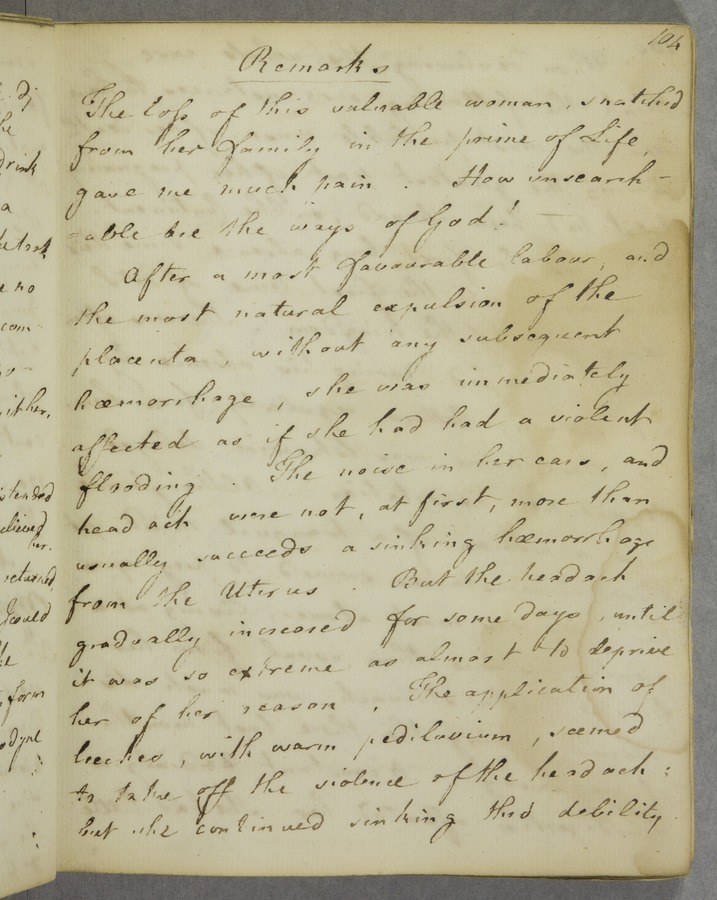 104
Remarks
The loss of this valuable woman, snatched
from her family in the prime of Life,
gave me much pain. How unsearch-
-able are the ways of God! -
After a most favourable labour, and
the most natural expulsion of the
placenta, without any subsequent
hæmorrhage, she was immediately
affected as if she had had a violent
flooding. The noise in her ears, and
head ach were not, at first, more than
usually succeeds a sinking hæmorrhage
from the Uterus. But the headach
gradually increased for some days, until
it was so extreme as almost to deprive
her of her reason. The application of
leeches, with warm pediluvium, seemed
to take off the violence of the headach:
but she continued sinking thro' debility
he
drink
a
no
com-
either,
believed
her.
returned,
would
form